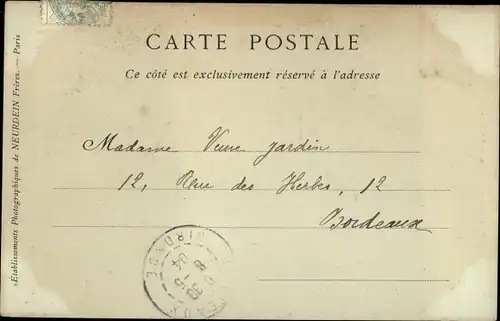 CARTE POSTALE
Ce côté est exclusivement réservé à l'adresse
Madame Veuve Jardin
12, Rue des Herbes, 12
Bordeaux
Établissements Photographiques de NEURDEIN Frères. — Paris
BORDEAUX
GIRONDE